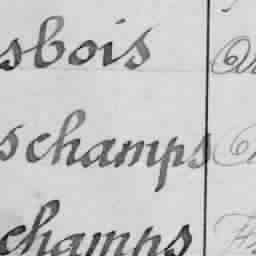 sbois
schamps
champs